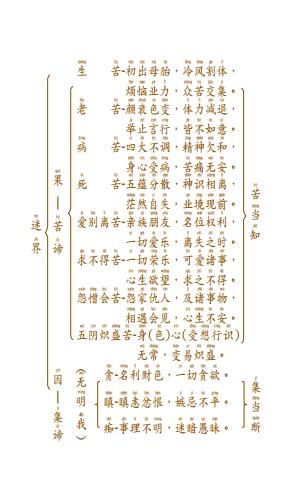 生　苦-初出母胎，冷风割体，
烦恼业力，众苦交集。
老　苦-颜衰色变，体力减退，
举止言行，皆不如意。
病　苦-四大不调，精神欠和
身心受病，苦痛无安
死　苦-五蕴分散，神识相离
茫然自失，业境现前
爱别离苦-亲族朋友，名位权利
一切爱乐，离失之时
求不得苦-一切荣乐，可爱诸事
心生欲望，求之不得
怨憎会苦-怨家仇人，及诸事物
相遇会见，心生不安
五阴炽盛苦-身(色)心(受想行识)
无常，变易炽盛。
果—苦谛
苦当知
迷界
因—集谛
(无明-我)
贪-名利财色，一切贪欲。
瞋-瞋恚忿恨，嫉忌不平。
痴-事理不明，迷暗愚昧。
集当断